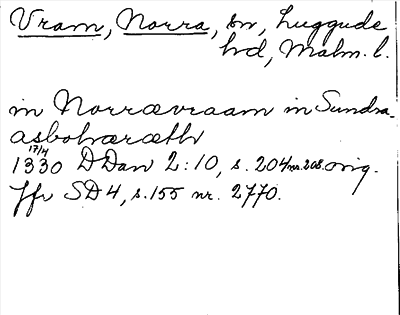 Vram, Norra, sn, Luggude
hd, Malm. l.
in Norræwraam in Sundra-
asbohæræth
17/4
1330 DDan 2:10, s. 204 nr. 208. orig.
Jfr SD4, s. 155 nr. 2770.